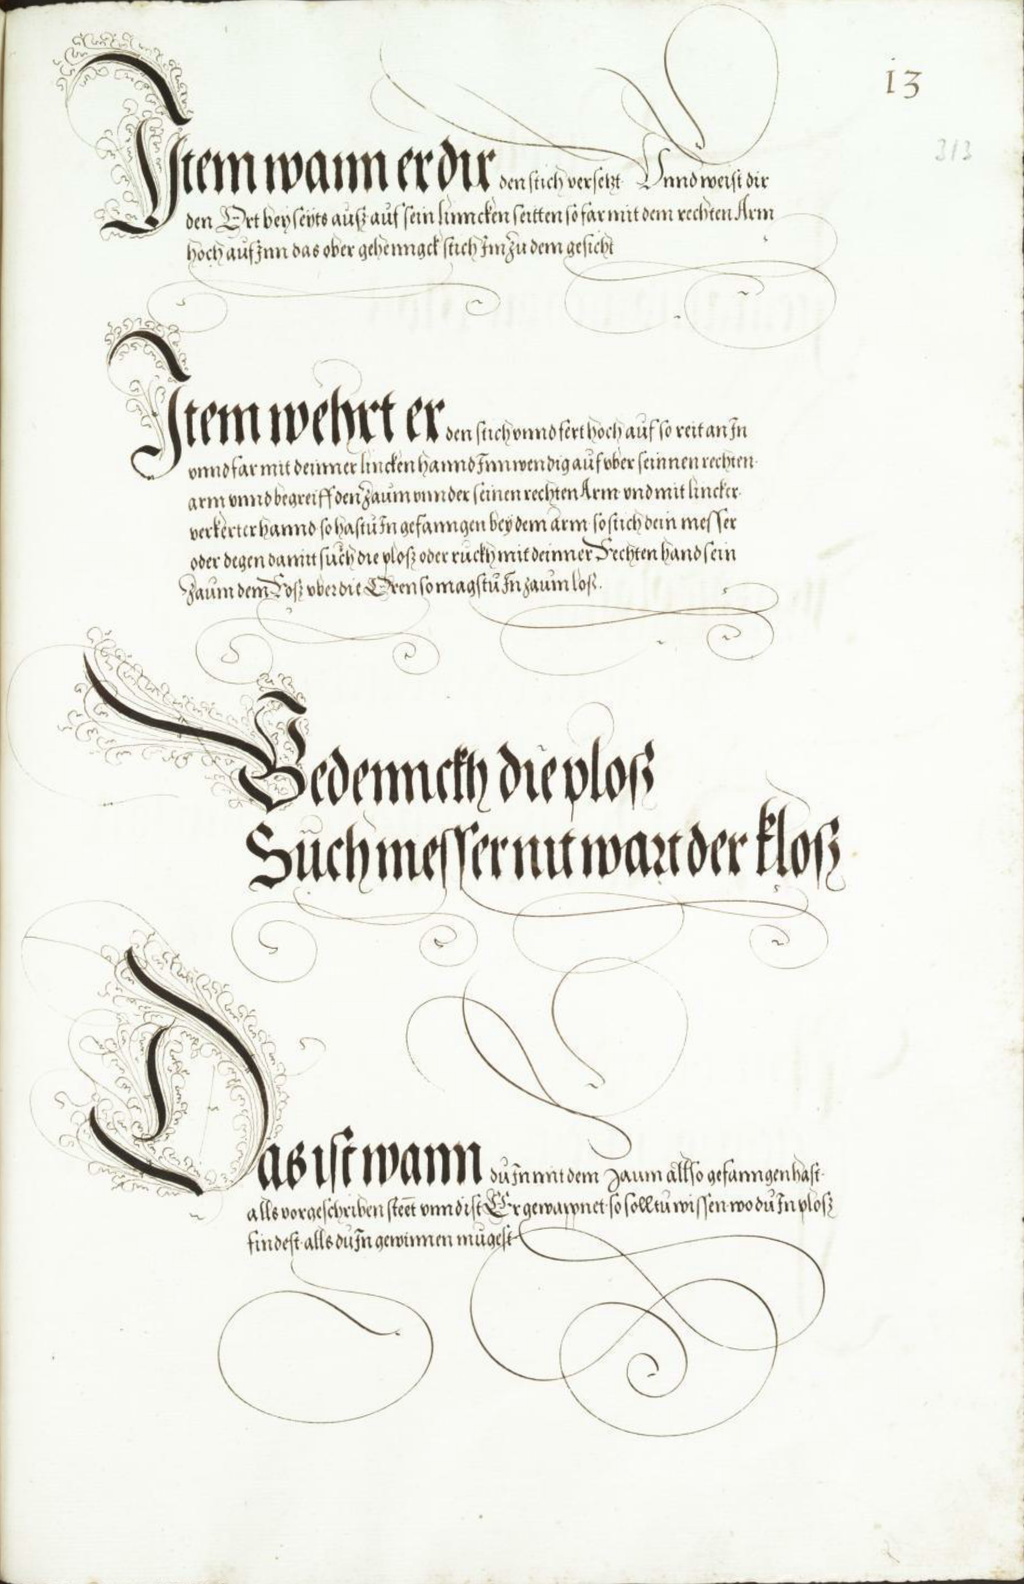 13
313
Item wann er dir den stich versetzt Vnnd weist dir
den Ort beyseyts auß auf sein linncken seitten so far mit dem rechten Arm
hoch auf Inn das ober gehenngck stich Im zu dem gesicht
Item wehrt er den stich vnnd fert hoch auf so reit an In
vnnd far mit deinner lincken hannd Innwendig auf vber seinnen rechten
arm vnnd begreiff den Zaum vnnder seinen rechten Arm vnd mit lincker
verkerter hannd so hastu In gefanngen bey dem arm so stich dein messer
oder degen damit such die ploß oder ruckh mit deinner Rechten hand sein
Zaum dem Roß vber die Oren so magstu In zaum loß
Bedennckh die ploß
Such messer nit wart der kloß
Das ist wann du In mit dem Zaum allso gefanngen hast
alls vorgeschriben steet vnnd ist Er gewappnet so solltu wissen wo du In ploß
findest alls du In gewinnen mugest